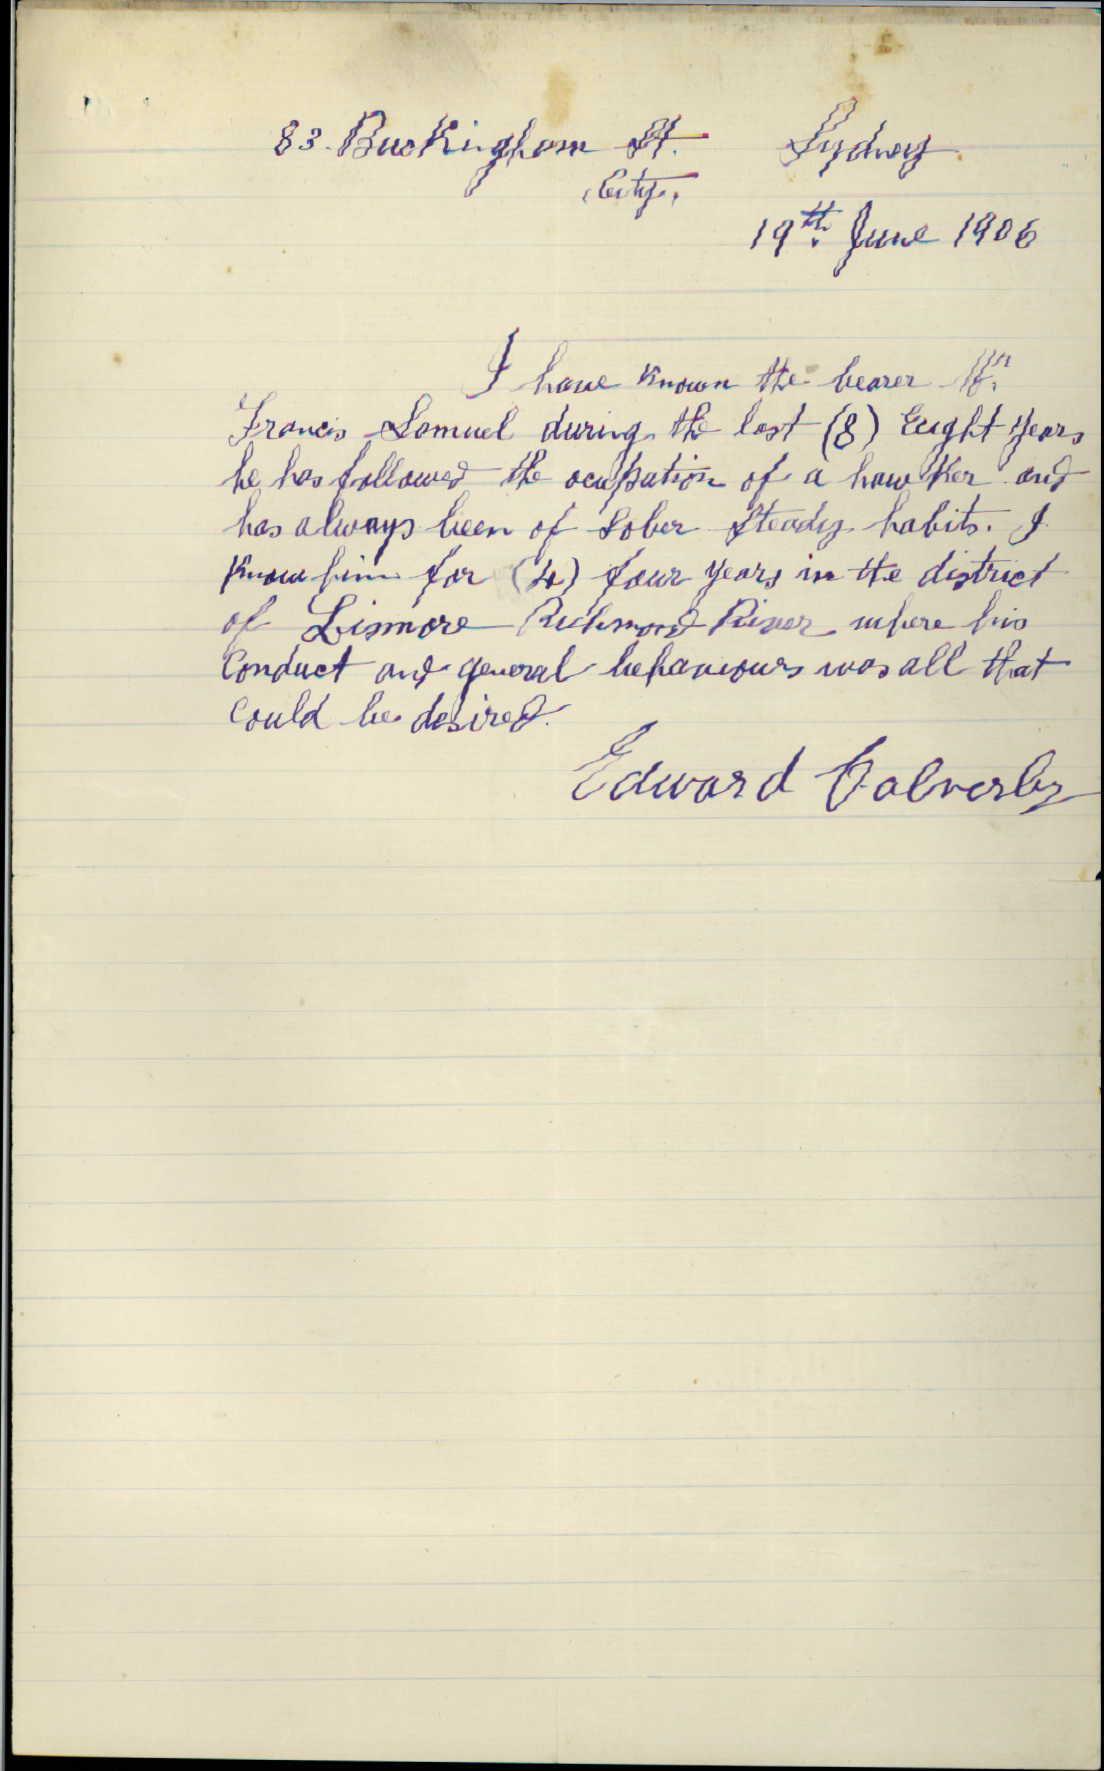 83. Buckingham St. Sydney
City.
19th. June 1906
I have known the bearer Mr.
Francis Samuel during the last (8) Eught years
he has followed the ocupation of a hawker and
has always been of Sober Steady habits. I
know him for (4) four years in the district
of Lismore Richmond River where his
Conduct and general behaviours was all that
Could be desired.
Edward